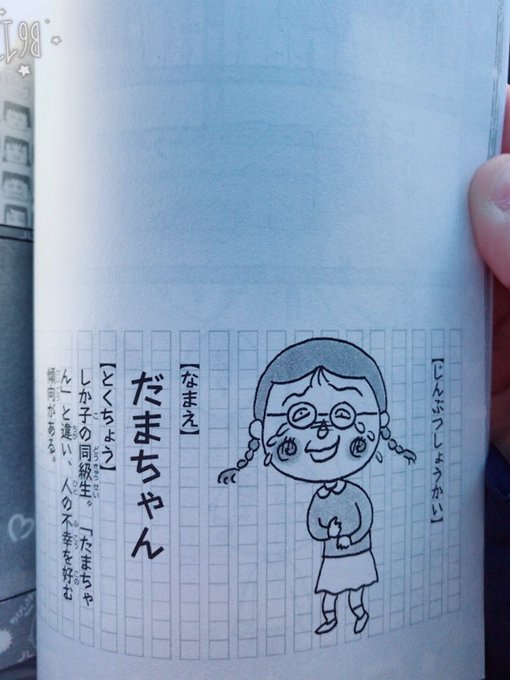 【じんぶつしょうかい】
【なまえ】
だまちゃん
【とくちょう】
しか子の同級生。「たまちゃ
ん」と違い、人の不幸を好む
傾向がある。
B612